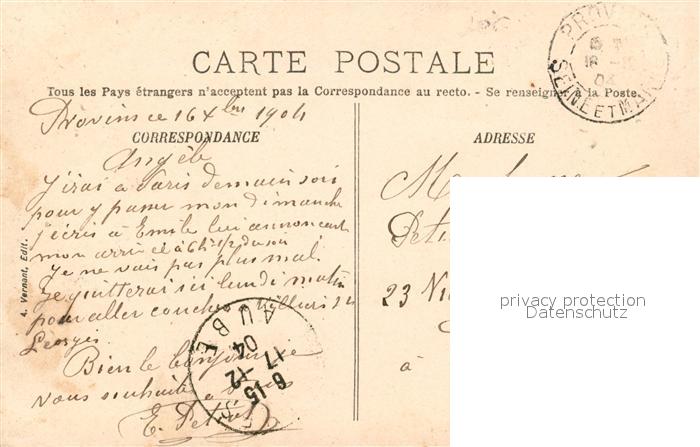 CARTE POSTALE
Tous les Pays étrangers n'acceptent pas la Correspondance au recto. - Se renseigner à la Poste.
PROVINS
SEINE ET MARNE
04
Provins ce 16 Xbre 1904
CORRESPONDANCE
ADRESSE
Angèle
J'irai à Paris demain soir
pour y passer mon dimanche
j'écris à Emile lui annoncant
mon arrivée à 6h 1/2 du soir
Je ne vais pas plus mal.
Je quitterai ici lundi matin
pour aller coucher
Georges
Bien le bonjour je
vous souhaite à
E. Petit
A. Vernant, Edit.
AUBE
6-15
17-12
04
Petit
23
à
privacy protection
Datenschutz